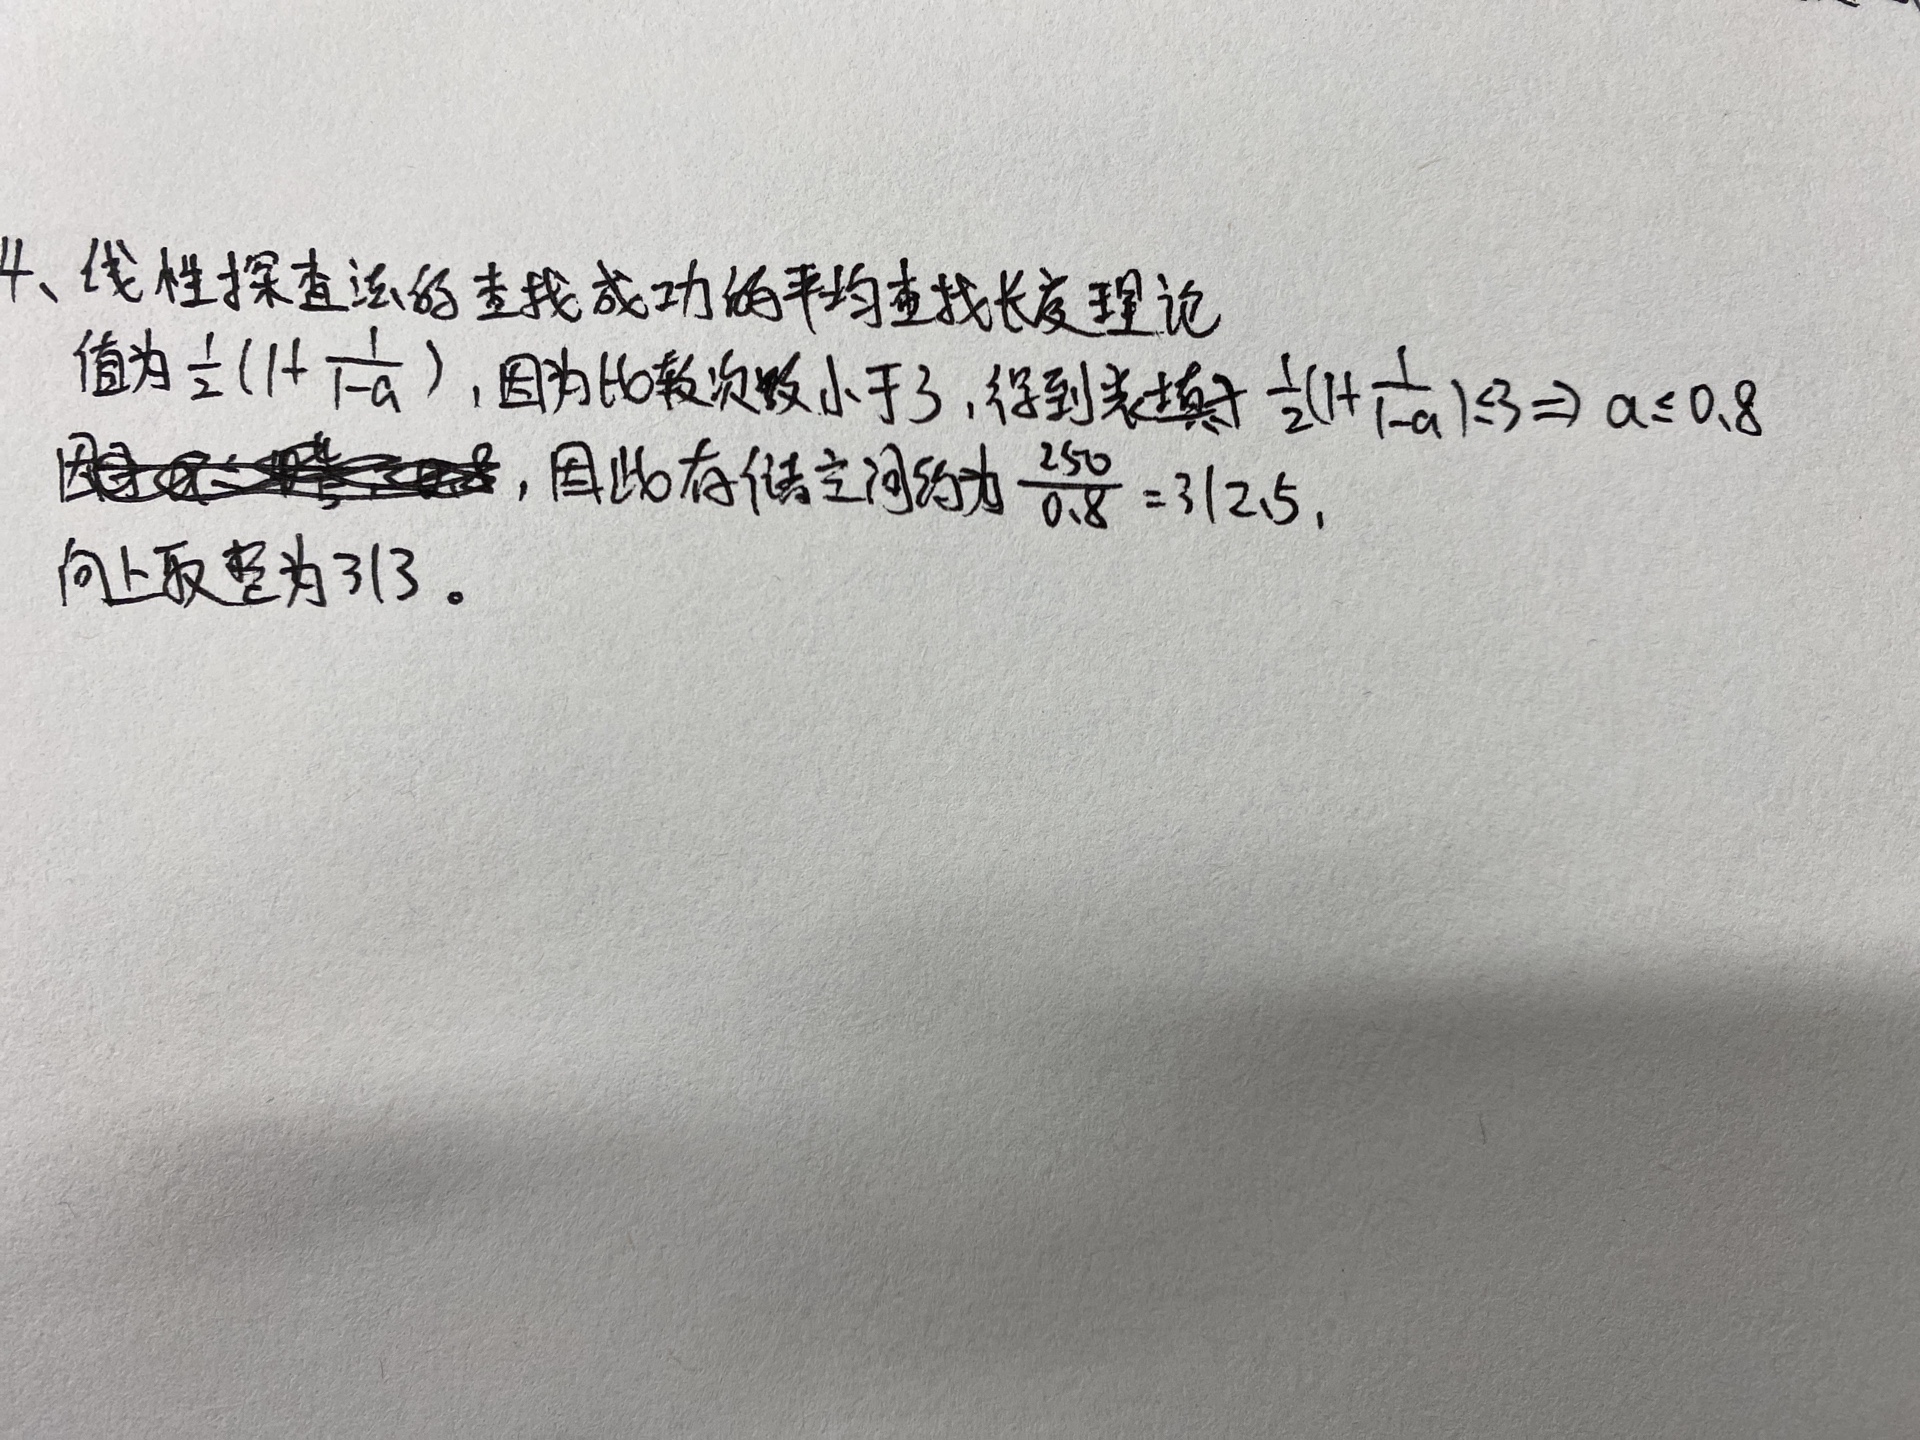 4、线性探查法的查找成功的平均查找长度理论
值为 1/2(1+1/(1-a)),因为比较次数小于3,得到装填 1/2(1+1/(1-a))≤3⇒ a≤0.8
,因此存储空间约为 250/0.8 =312.5,
向上取整为313。